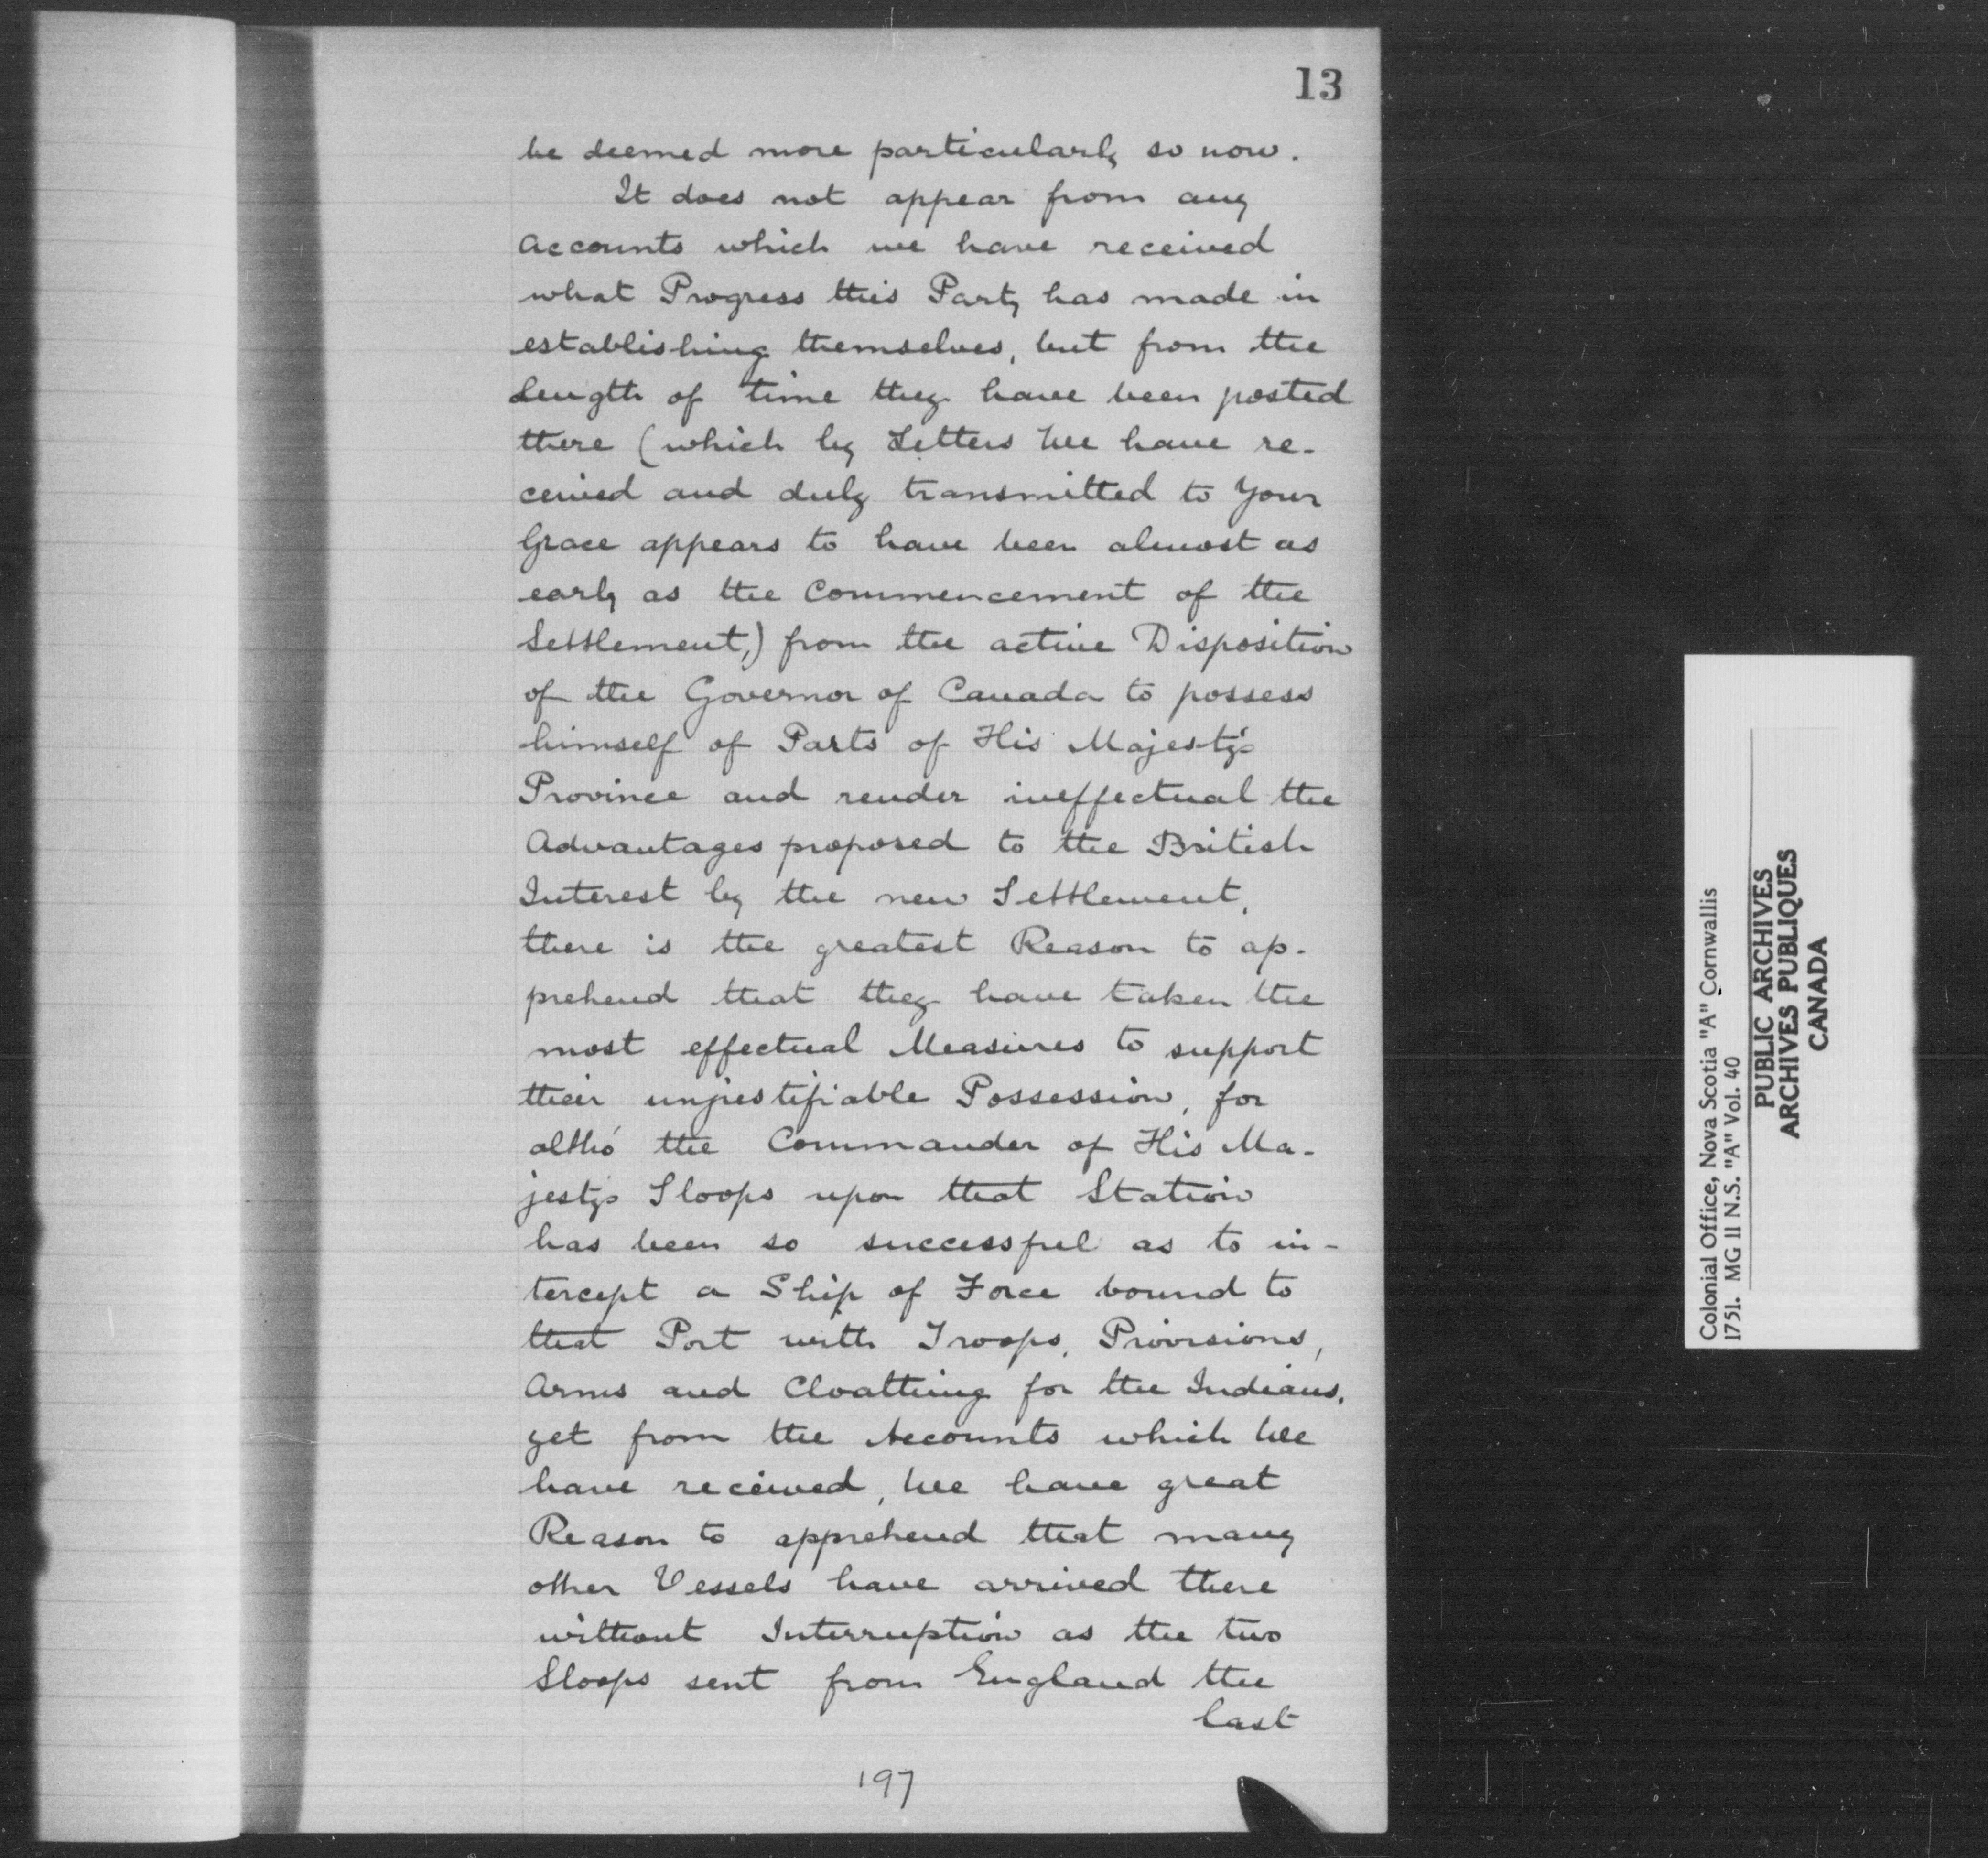 13
be deemed more particularly so now.
It does not appear from any
Accounts which we have received
what Progress this Party has made in
establishing themselves, but from the
Length of time they have been posted
there (which by Letters We have re-
ceived and duly transmitted to Your
Grace appears to have been almost as
early as the Commencement of the
Settlement,) from the active Disposition
of the Governor of Canada to possess
himself of Parts of His Majesty's
Province and render ineffectual the
Advantages proposed to the British
Interest by the new Settlement,
there is the greatest Reason to ap-
prehend that they have taken the
most effectual Measures to support
their unjustifiable Possession, for
altho' the Commander of His Ma-
jestys Sloops upon that Station
has been so successful as to in-
tercept a Ship of Force bound to
that Port with Troops, Provisions,
Arms and Cloathing for the Indians,
yet from the Accounts which We
have received, We have great
Reason to apprehend that many
other Vessels have arrived there
without Interruption as the two
Sloops sent from England the
last
197
Colonial Office, Nova Scotia "A" Cornwallis
1751. MG II N.S. "A" Vol. 40
PUBLIC ARCHIVES
ARCHIVES PUBLIQUES
CANADA